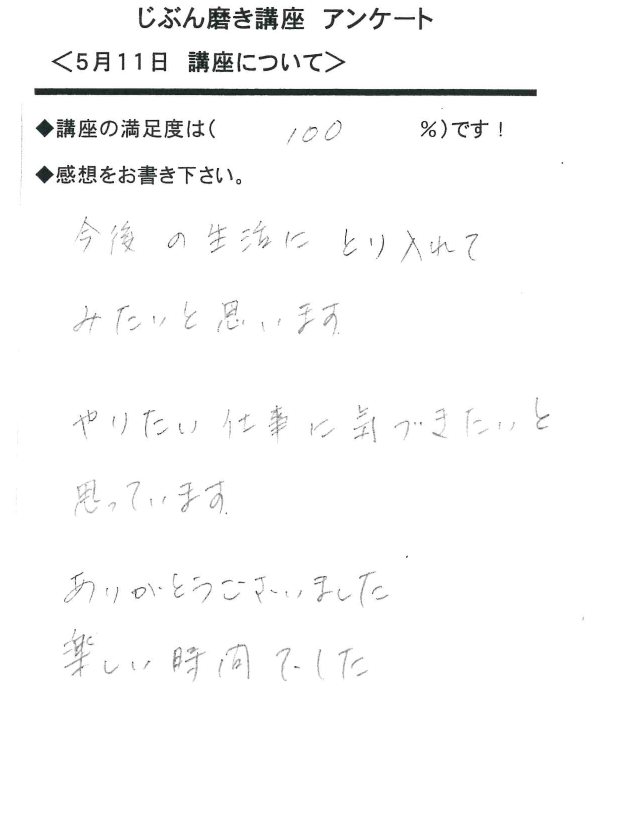 じぶん磨き講座 アンケート
＜5月11日 講座について＞
◆講座の満足度は( 100 %)です!
◆感想をお書き下さい。
今後の生活にとり入れて
みたいと思います
やりたい仕事に気づきたいと
思っています
ありがとうございました
楽しい時間でした